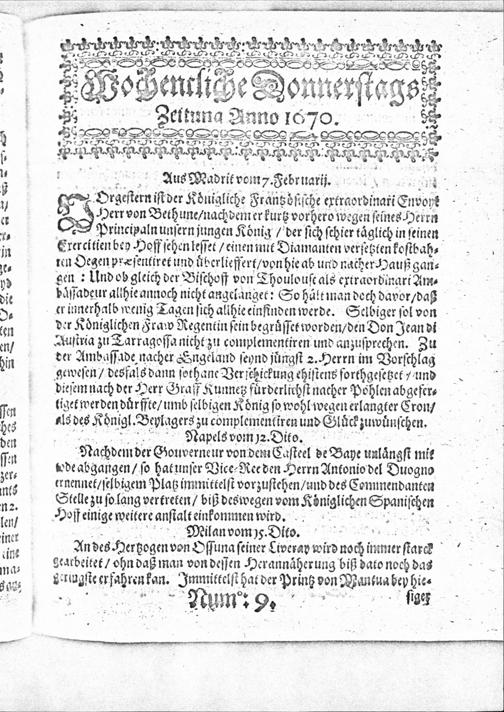 Wochentliche Donnerstags
Zeitung Anno 1670.
Aus Madrit vom 7. Februarij.
VOrgestern ist der Königliche Frantzösische extraordinari Envoyé
Herr von Bethune/ nachdem er kurtz vorhero wegen seines Herrn
Principaln unsern jungen König / der sich schier täglich in seinen
Exercitien bey Hoff sehen lesset / einen mit Diamanten versetzten kostbah-
ren Degen præsentiret und überlieffert/ von hie ab und nacher Hauß gan-
gen : Und ob gleich der Bischoff von Thoulouse als extraordinari Am-
bassadeur allhie annoch nicht angelanget: So hält man doch davor/ daß
er innerhalb wenig Tagen sich allhie einfinden werde. Selbiger sol von
der Königlichen Fraw Regentin sein begrüsset worden/ den Don Jean di
Austria zu Tarragossa nicht zu complimentiren und anzusprechen. Zu
der Ambassade nacher Engeland seynd jüngst 2. Herrn im Vorschlag
gewesen/ desfals dann sothane Verschickung ehistens forthgesetzet / und
diesem nach der Herr Graff Kunnetz fürderlichst nacher Pohlen abgefer-
tiget werden dürffte/ umb selbigen König so wohl wegen erlangter Cron/
als des Königl. Beylagers zu complimentiren und Glück zu wünschen.
Napels vom 12. Dito.
Nachdem der Gouverneur von dem Casteel de Baye unlängst mit
tode abgangen/ so hat unser Vice-Ree den Herrn Antonio del Duogno
ernennet/ selbigem Platz immittelst vorzustehen/ und des Commendanten
Stelle zu so lang vertreten/ biß deswegen vom Königlichen Spanischen
Hoff einige weitere anstalt einkommen wird.
Milan vom 15. Dito.
An des Hertzogen von Ossuna seiner Liveray wird noch immer starck
gearbeitet / ohn daß man von dessen Herannäherung biß dato noch das
geringste erfahren kan. Immittelst hat der Printz von Mantua bey hie-
Num°: 9.
siger